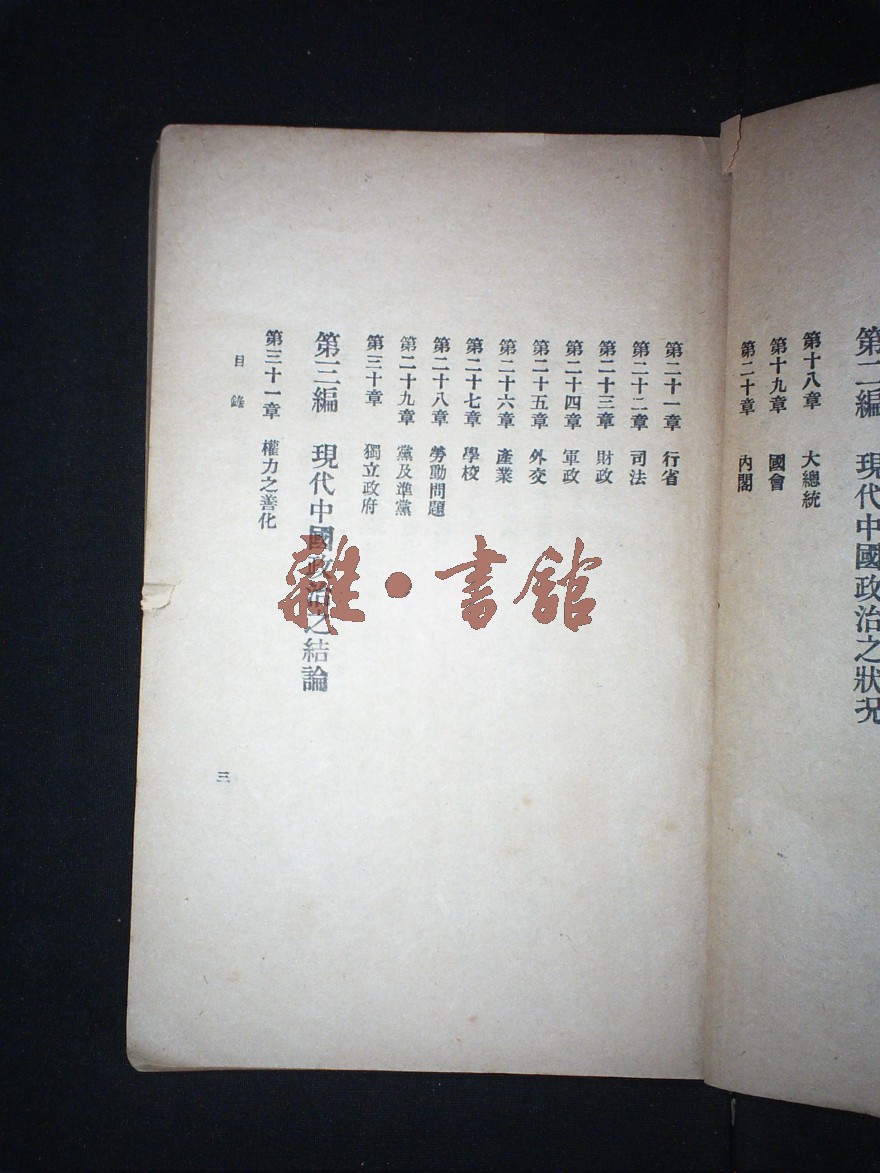 第二編　現代中國政治之狀況
第十八章　大總統
第十九章　國會
第二十章　內閣
第二十一章　行省
第二十二章　司法
第二十三章　財政
第二十四章　軍政
第二十五章　外交
第二十六章　產業
第二十七章　學校
第二十八章　勞動問題
第二十九章　黨及準黨
第三十章　獨立政府
第三編　現代中國政治之結論
第三十一章　權力之善化
目錄
三
雜·書館